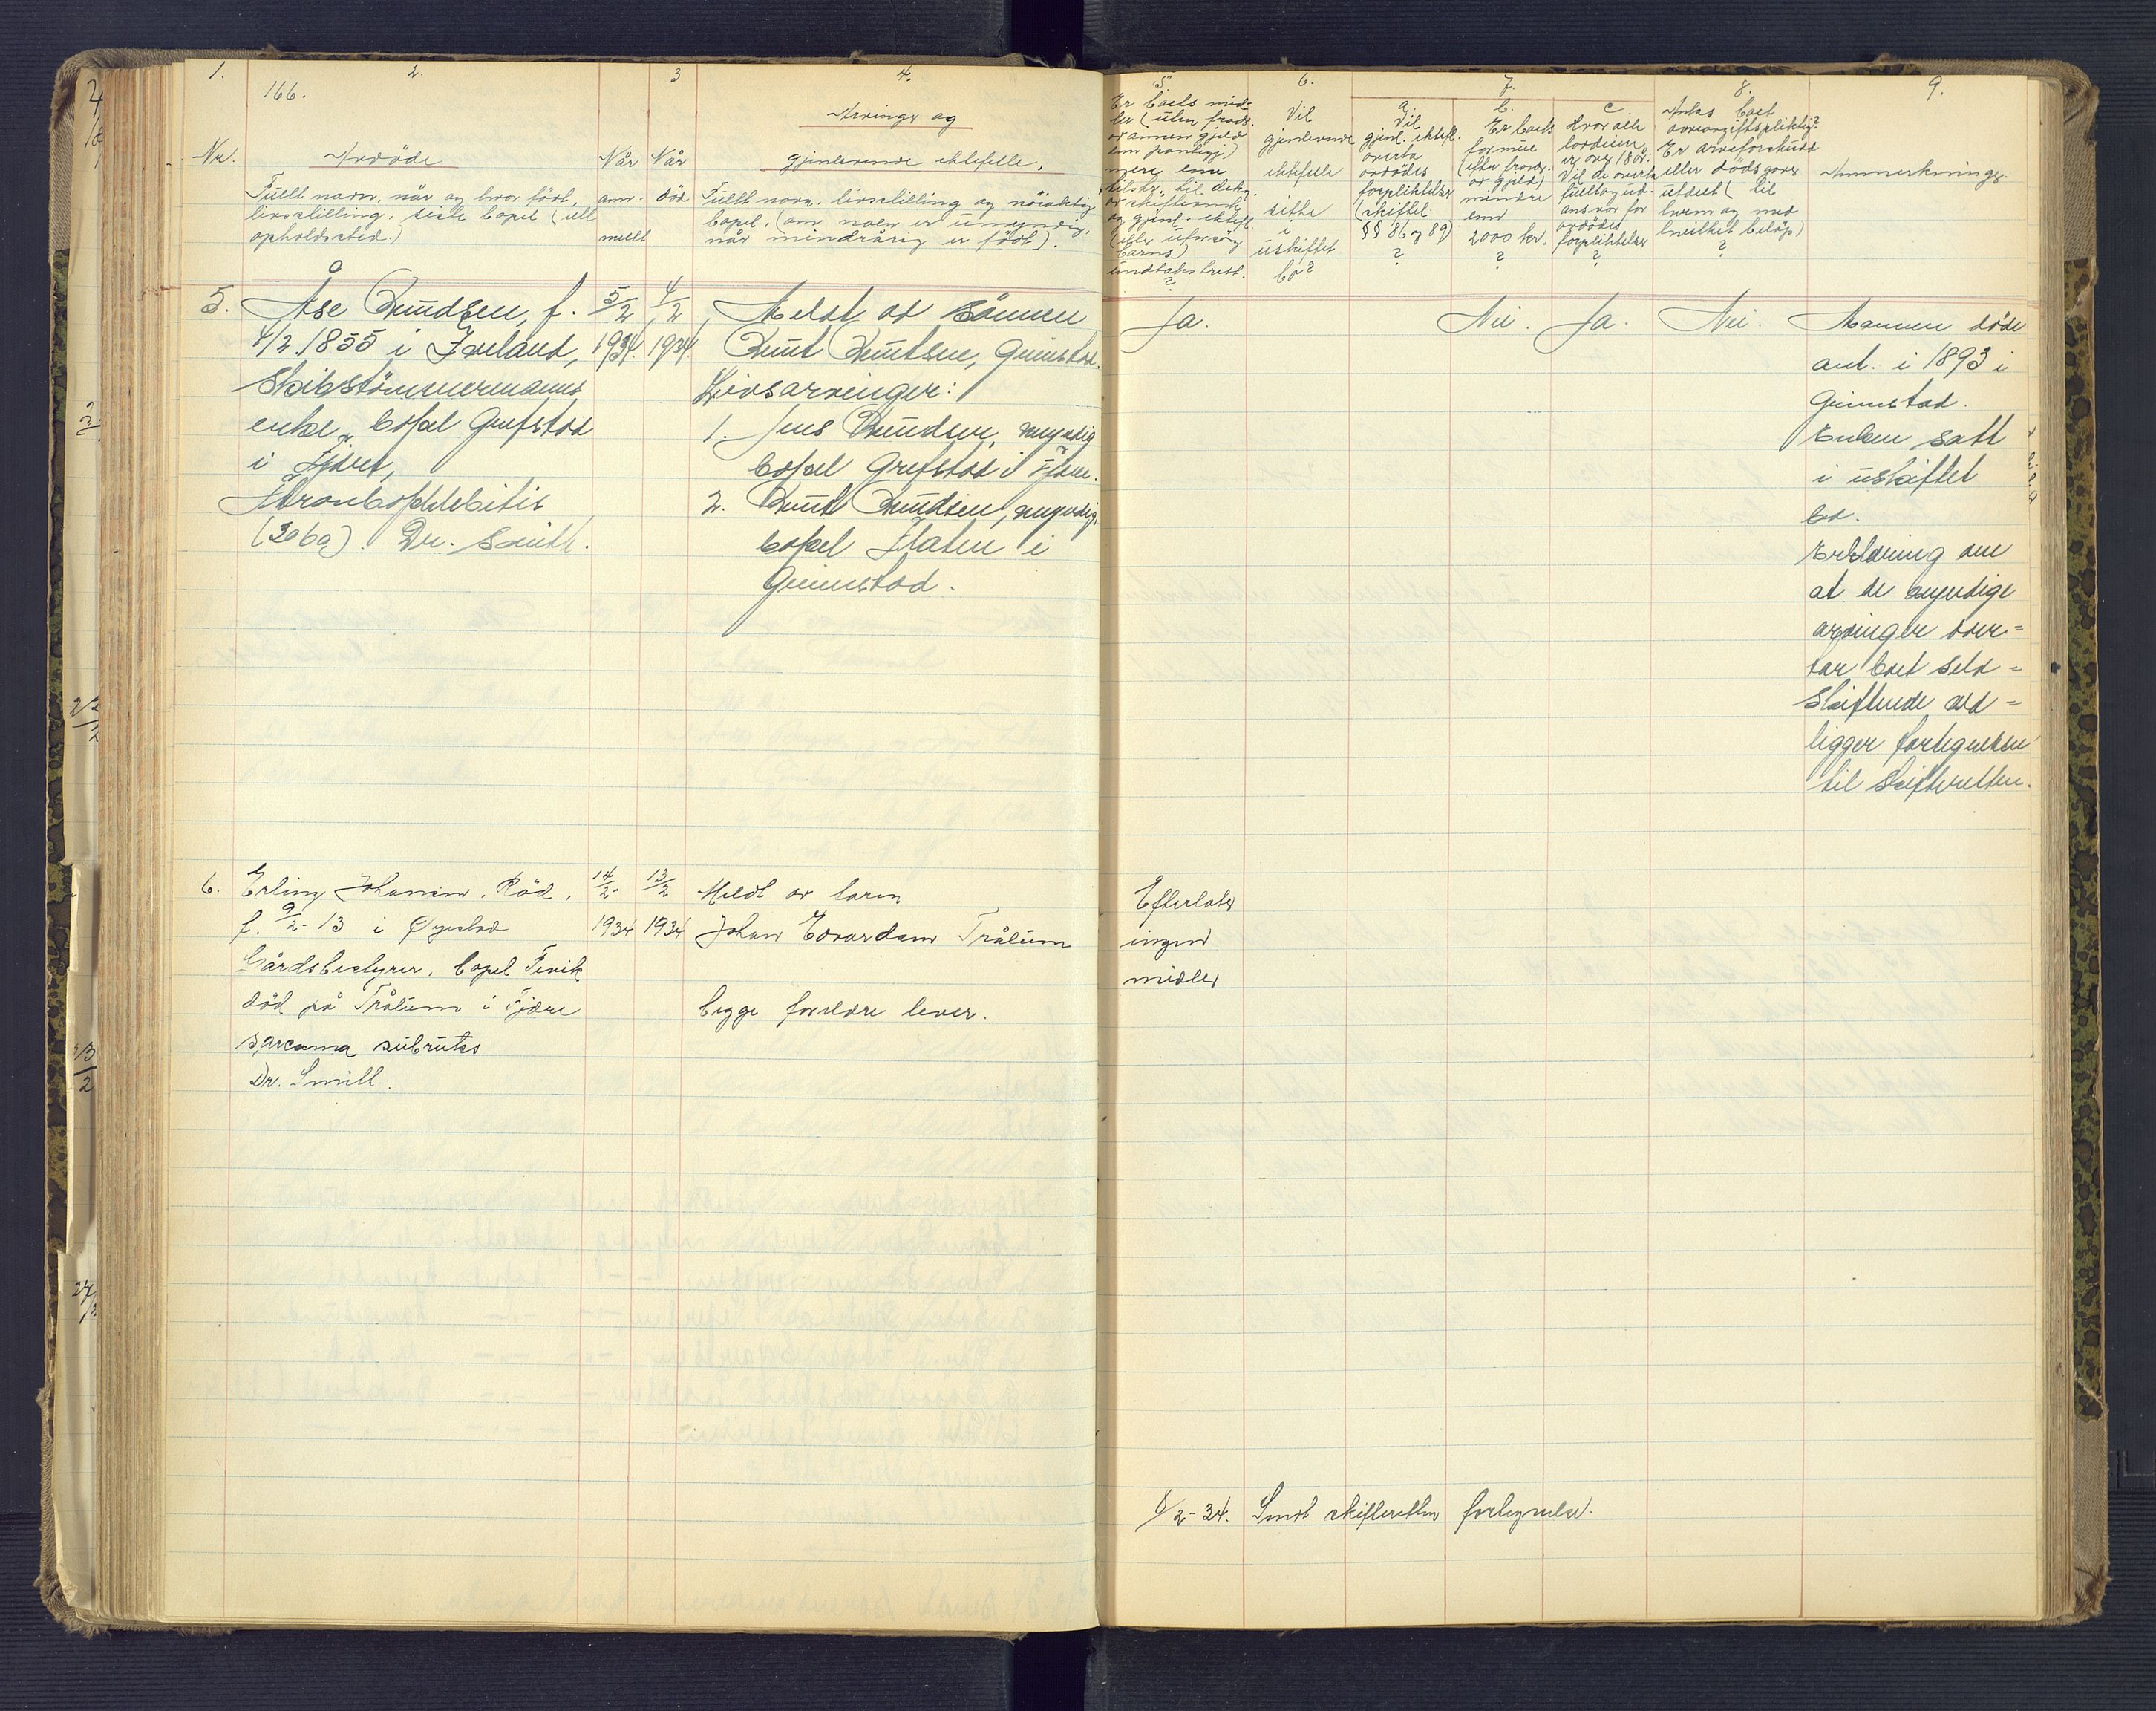 1. 2. 3 4.
166.
Arvinger og
Nr. Avdöde Når Når gjenlevende ektefelle.
Fullt navn, når og hvor født, an- død Fullt navn, livsstilling og nöiaktig
livsstilling, siste bopel (ell. bopel. (om noen er umyndig,
opholdssted.) meldt når mindreårig er født).
5. Åse Knudsen, f. 5/2 4/2 Meldt av sönnen
4/2 1855 i Iveland, 1934. 1934. Knut Knutsen, Grimstad.
Skibstömmermanns Livsarvinger:
enke, bopel Grefstad 1. Jens Knudsen, myndig
i Fjære, bopel Grefstad i Fjære.
Trombophlebitis 2. Knut Knudsen, myndig,
(306a). Dr. Smith. bopel Flaten i
Grimstad.
6. Erling Johansen. Röd. 14/2 13/2 Meldt av faren
f. 9/2-13 i Øyestad 1934 1934 Johan Edvardsen Trålum
Gårdsbestyrer, bopel Fevik
död på Trålum i Fjære begge foreldre lever.
sarcoma
Dr. Smith.
5. 6. 7. 8. 9.
Er boets mid- a. b. c. Antas boet
ler (uten fradr. Vil Vil Er boets Hvor alle avgiftspliktig?
av annen gjeld gjenlevende gjenl. ektef. formue loddeiere Er arveforskudd
enn pantegj.) overta (efter fradr. er over 18 år: eller dödsgaver Anmerkninger.
mere enn ektefelle avdödes av gjeld) Vil de overta utdelt (til
tilstr. til dekn. sitte forpliktelser mindre fullt og ud. hvem og med
av skifteomk. i (skiftel. enn ansvar for hvilket belöp)
og gjenl. ektef. uskiftet §§ 86 og 89) 2000 kr. avdödes ?
(eller uforsörg. bo? ? ? forpliktelser
barns) ?
undtaksrett.
?
Ja. Nei. Ja. Nei. Mannen döde
ant. i 1893 i
Grimstad.
Enken satt
i uskiftet
bo.
Erklæring om
at de myndige
arvinger over-
tar boet selv-
skiftende ved-
ligger fortegnelsen
til skifteretten.
Efterlater
ingen
midler
6/2-34. Sendt skifteretten fortegnelse.